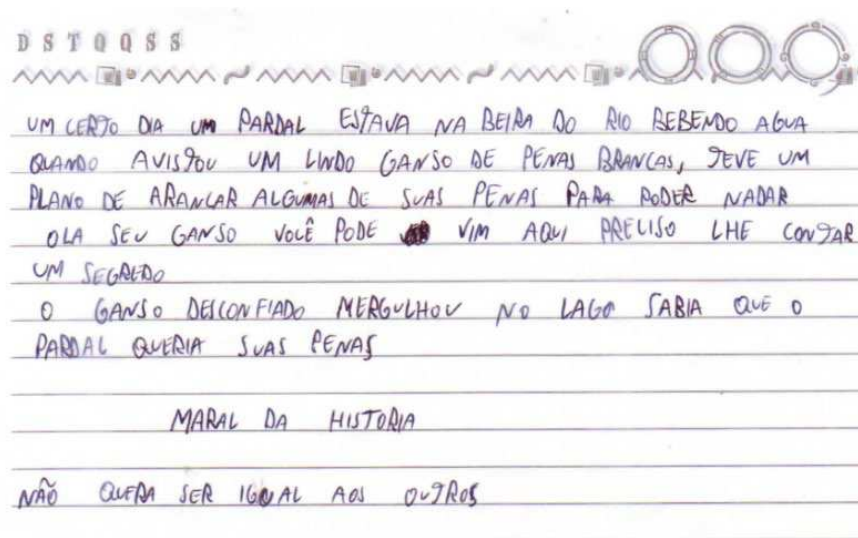 D S T Q Q S S
UM CERTO DIA UM PARDAL ESTAVA NA BEIRA DO RIO BEBENDO AGUA
QUANDO AVISTOU UM LINDO GANSO DE PENAS BRANCAS, TEVE UM
PLANO DE ARANCAR ALGUMAS DE SUAS PENAS PARA PODER NADAR
OLA SEU GANSO VOCÊ PODE VIM AQUI PRECISO LHE CONTAR
UM SEGREDO
O GANSO DESCONFIADO MERGULHOU NO LAGO SABIA QUE O
PARDAL QUERIA SUAS PENAS
MARAL DA HISTORIA
NÃO QUERA SER IGUAL AOS OUTROS